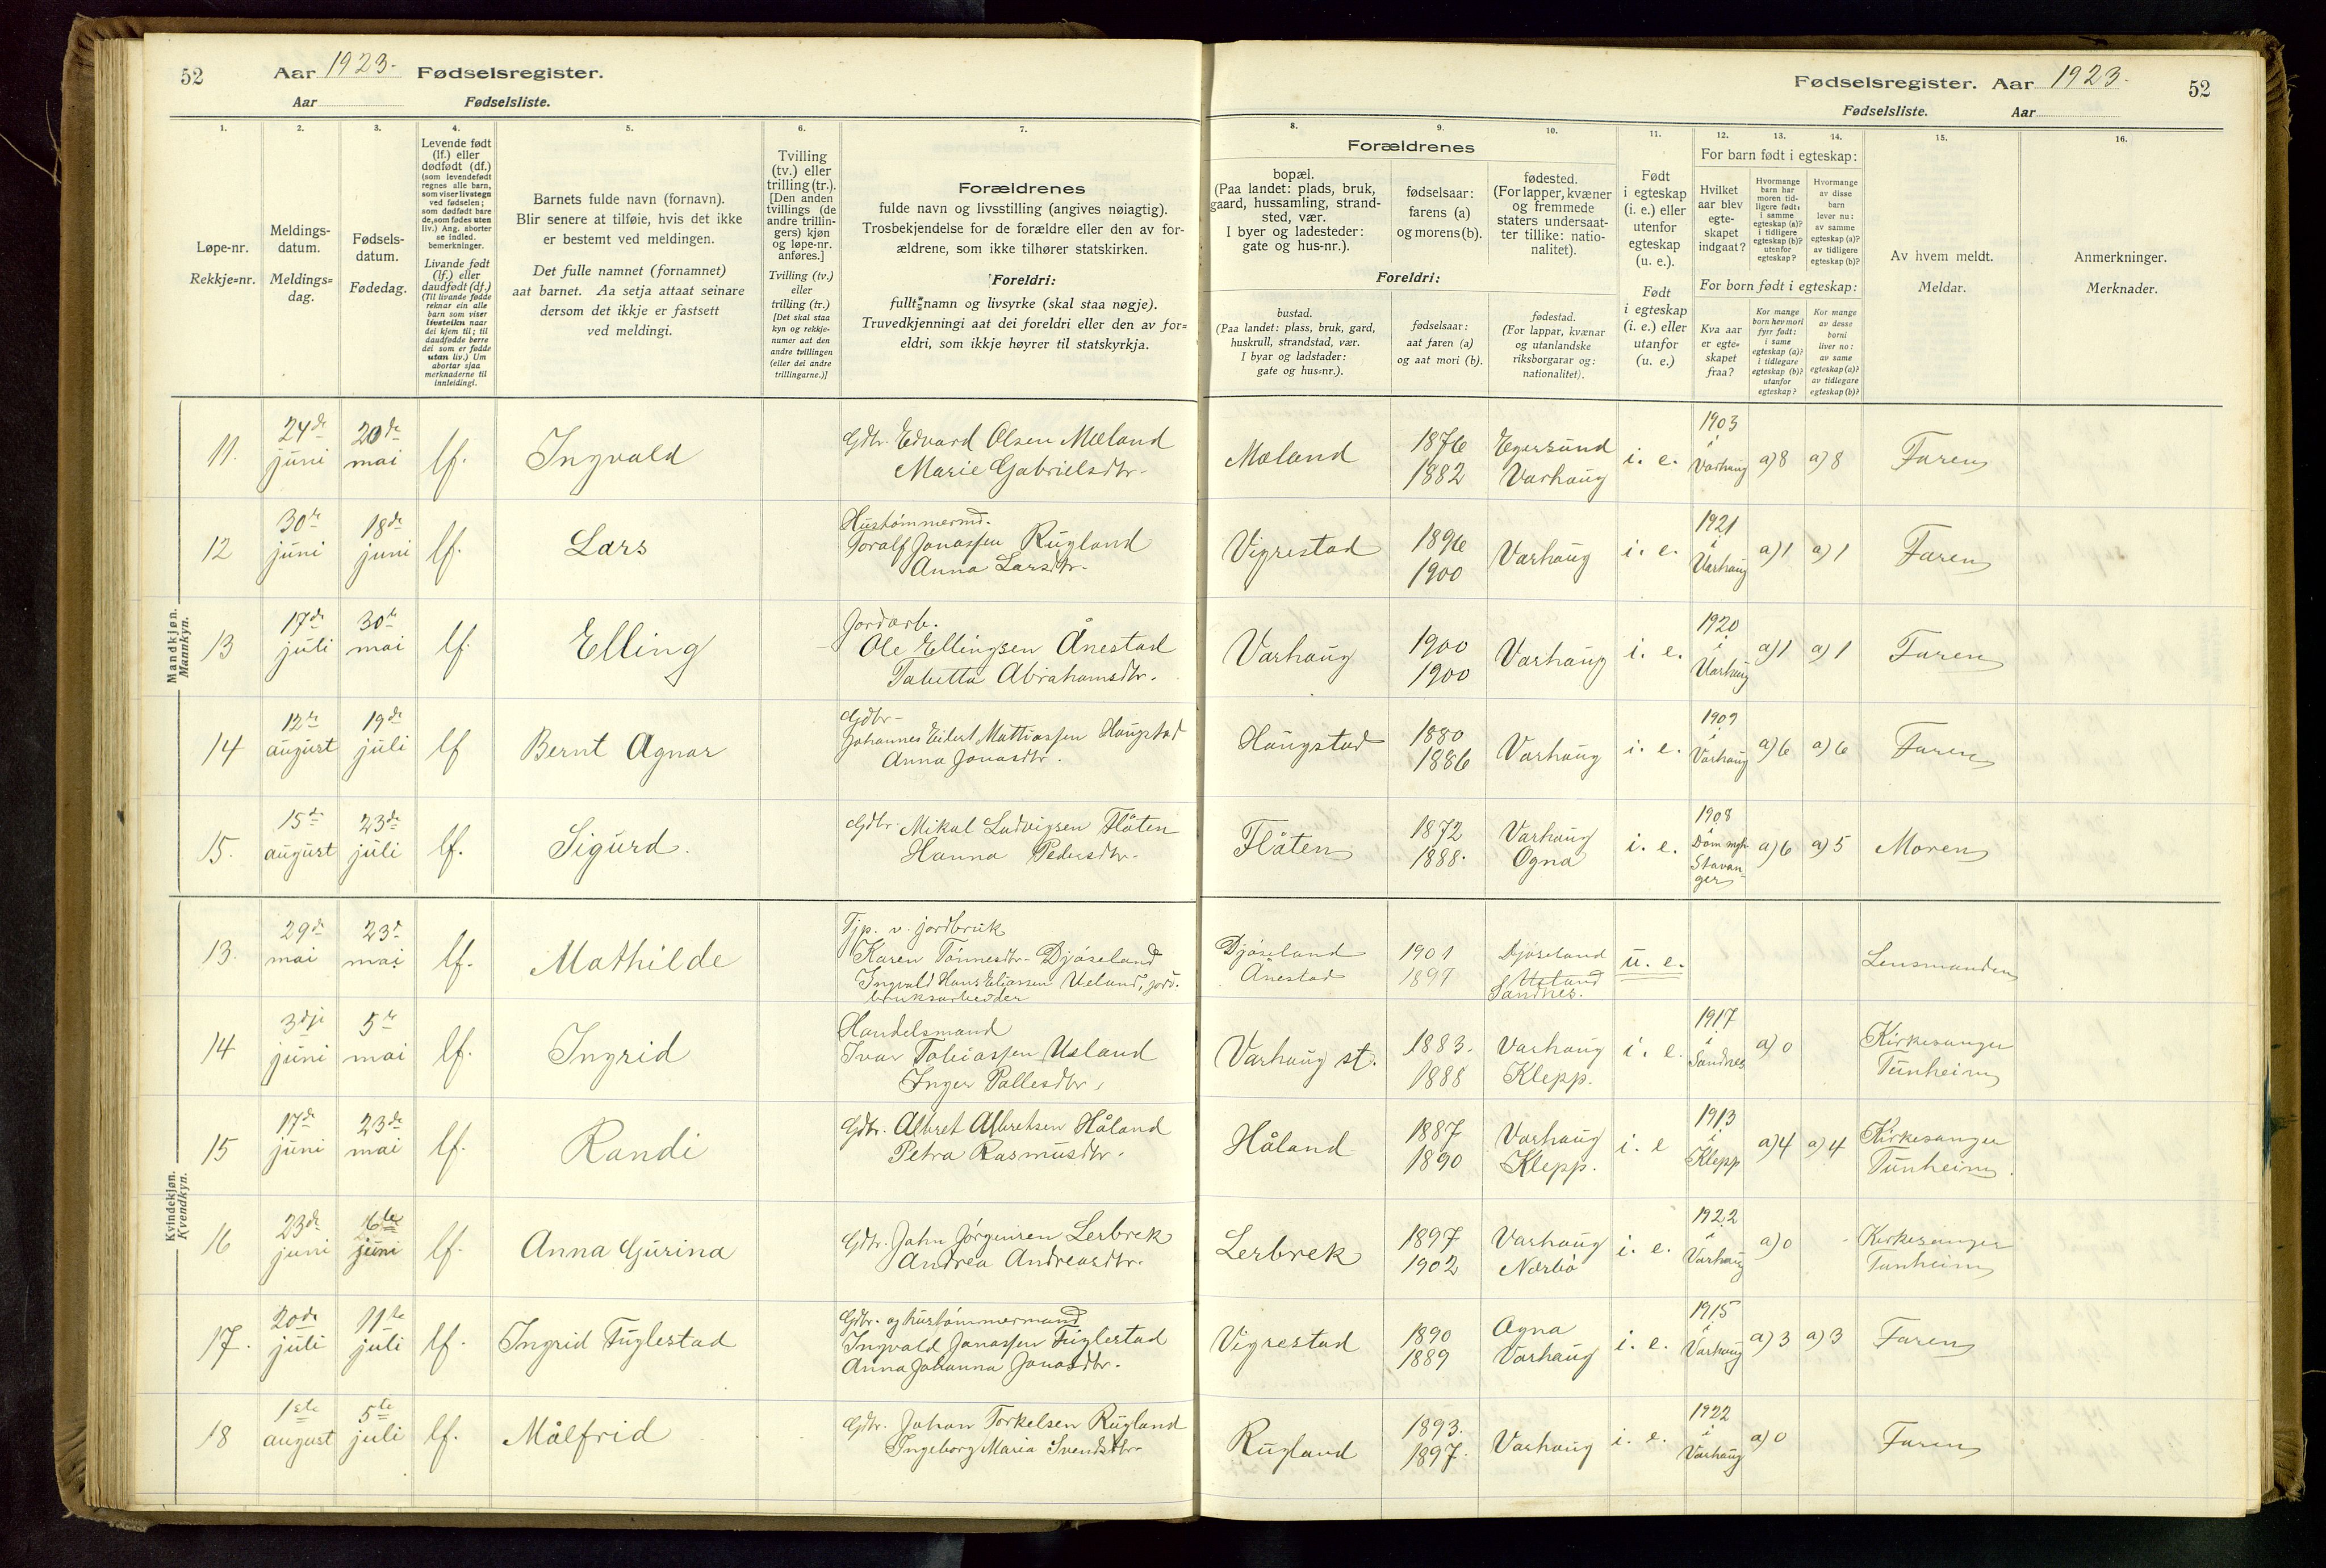 52 Aar 1923. Fødselsregister.
Aar Fødselsliste.
1. 2. 3. 4. 5. 6. 7.
Løpe-nr.
Rekkje=nr.
Meldings-
datum.
Meldings=
dag.
Fødsels-
datum.
Fødedag.
Levende født
(lf.) eller
dødfødt (df.)
(som levendefødt
regnes alle barn,
som viser livstegn
ved fødselen;
som dødfødt bare
de, som fødes uten
liv.) Ang. aborter
se indled.
bemerkninger.
Livande født
(lf.) eller
daudfødt (df.)
(Til livande fødde
reknar ein alle
barn som viser
livsteikn naar
dei kjem til; til
daudfødde berre
dei som er fødde
utan liv.) Um
abortar sjaa
merknaderne til
innleidingi.
Barnets fulde navn (fornavn).
Blir senere at tilføie, hvis det ikke
er bestemt ved meldingen.
Det fulle namnet (fornamnet)
aat barnet. Aa setja attaat seinare
dersom det ikkje er fastsett
ved meldingi.
Tvilling
(tv.) eller
trilling (tr.).
[Den anden
tvillings (de
andre trillin-
gers) kjøn
og løpe-nr.
anføres.]
Tvilling (tv.)
eller
trilling (tr.)
[Det skal staa
kyn og rekkje-
numer aat den
andre tvillingen
(eller dei andre
trillingarne.)]
Forældrenes
fulde navn og livsstilling (angives nøiagtig).
Trosbekjendelse for de forældre eller den av for-
ældrene, som ikke tilhører statskirken.
Foreldri:
fullt namn og livsyrke (skal staa nøgje).
Truvedkjenningi aat dei foreldri eller den av for=
eldri, som ikkje høyrer til statskyrkja.
Fødselsregister. Aar 1923. 52
Fødselsliste. Aar
8. 9. 10. 11. 12. 13. 14. 15. 16.
Forældrenes
bopæl.
(Paa landet: plads, bruk,
gaard, hussamling, strand-
sted, vær.
I byer og ladesteder:
gate og hus-nr.).
fødselsaar:
farens (a)
og morens (b).
fødested.
(For lapper, kvæner
og fremmede
staters undersaat-
ter tillike: natio-
nalitet).
Foreldri:
bustad.
(Paa landet: plass, bruk, gard,
huskrull, strandstad, vær.
I byar og ladstader:
gate og hus=nr.).
fødselsaar:
aat faren (a)
og aat mori (b).
fødestad.
(For lappar, kvænar
og utanlandske
riksborgarar og:
nationalitet).
Født
i egteskap
(i. e.) eller
utenfor
egteskap
(u. e.).
Født
i egteskap
(i. e.) eller
utanfor
(u. e.)
For barn født i egteskap:
Hvilket
aar blev
egte-
skapet
indgaat?
Hvormange
barn har
moren tid-
ligere født:
i samme
egteskap (a)?
i tidligere
egteskap (b)?
utenfor
egteskap?
Hvormange
av disse
barn
lever nu:
av samme
egteskap (a)?
av tidligere
egteskap (b)?
For born født i egteskap:
Kva aar
er egte=
skapet
fraa?
Kor mange
born hev mori
fyrr født:
i same
egteskap (a)?
i tidlegare
egteskap (b)?
utanfor
egteskap?
Kor mange
av desse
borni
liver no:
av same
egteskap (a)?
av tidlegare
egteskap (b)?
Av hvem meldt.
Meldar.
Anmerkninger.
Merknader.
Mandkjøn.
Mannkyn.
11. 24de juni 20de mai lf. Ingvald Gdbr. Edvard Olsen Mæland
Marie Gabrielsdtr.
Mæland 1876 1882 Egersund Varhaug i. e. 1903 i Varhaug a) 8 a) 8 Faren
12 30te juni 18de juni lf. Lars Hustømmermd.
Toralf Jonassen Rugland
Anna Larsdtr.
Vigrestad 1896 1900 Varhaug i. e. 1921 i Varhaug a) 1 a) 1 Faren
13 17de juli 30te mai lf. Elling Jordarb.
Ole Ellingsen Ånestad
Tabetta Abrahamsdtr.
Varhaug 1900 1900 Varhaug i. e. 1920 i Varhaug a) 1 a) 1 Faren
14 12te august 19de juli lf Bernt Agnar Gdbr.
Johannes Eilert Mattiassen Haugstad
Anna Jonasdtr.
Haugstad 1880 1886 Varhaug i. e. 1909 i Varhaug a) 6 a) 6 Faren
15. 15de august 23de juli lf. Sigurd. Gdbr. Mikal Ludvigsen Flåten
Hanna Pedersdtr.
Flåten 1872 1888. Varhaug Ogna i. e. 1908 i Domsogn Stavanger a) 6 a) 5 Moren
Kvindekjøn.
Kvendkyn.
13. 29de mai 23de mai lf. Mathilde Tjp. v. jordbruk
Karen Tønnesdtr. Djøseland
Ingvald Hans Eliassen Ueland, jord-
bruksarbeider
Djøseland Ånestad 1901 1897 Djøseland Sandnes. u. e. Lensmanden
14 3dje juni 5te mai lf. Ingrid Handelsmand
Ivar Tobiassen Ueland
Inger Pallesdtr.
Varhaug st. 1883. 1888 Varhaug Klepp. i. e. 1917 i Sandnes a) 0 Kirkesanger Tunheim
15 17de juni 23de mai lf. Randi Gdbr. Albret Albretsen Håland
Petra Rasmusdtr.
Håland 1887 1890 Varhaug Klepp. i. e 1913 i Klepp a) 4 a) 4 Kirkesanger Tunheim.
16 23de juni 16de juni lf. Anna Gurina Gdbr. John Jørgensen Lerbrek
Andrea Andreasdtr.
Lerbrek 1897 1902 Varhaug Nærbø i. e. 1922 i Varhaug a) 0 Kirkesanger Tunheim
17. 20de juli 11te juli lf. Ingrid Fuglestad Gdbr. og hustømmermand
Ingvald Jonassen Fuglestad
Anna Johanna Jonasdtr.
Vigrestad 1890 1889 Ogna Varhaug i. e. 1915 i Varhaug a) 3 a) 3 Faren
18 1ste august 5te juli lf. Målfrid Gdbr. Johan Torkelsen Rugland
Ingeborg Maria Svendsdtr.
Rugland 1893. 1897. Varhaug i. e. 1922 i Varhaug a) 0 Faren